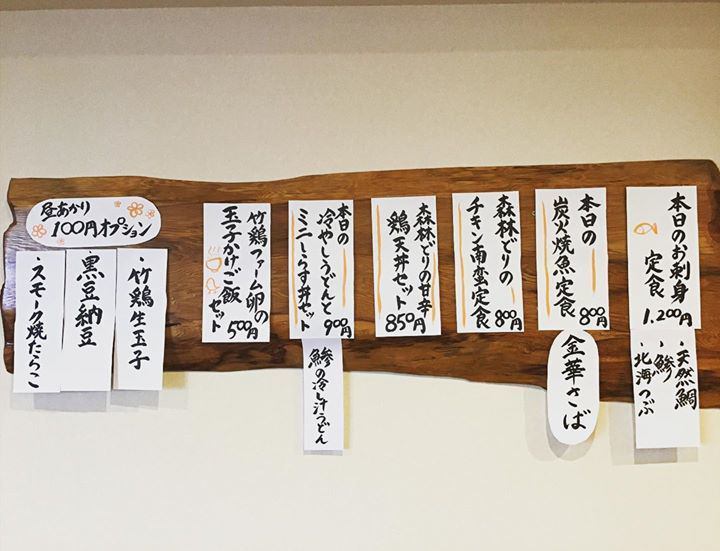 本日のお刺身
定食
1.200円
・天然鯛
・鯵
・北海つぶ
本日の
炭火焼魚定食
800円
金華さば
森林どりの
チキン南蛮定食
800円
森林どりの甘辛
鶏天丼セット
850円
本日の
冷やしうどんと
ミニしらす丼セット
900円
鯵の冷し汁うどん
竹鶏ファーム卵の
玉子かけご飯
セット
500円
昼あかり
100円オプション
・竹鶏生玉子
・黒豆納豆
・スモーク焼たらこ